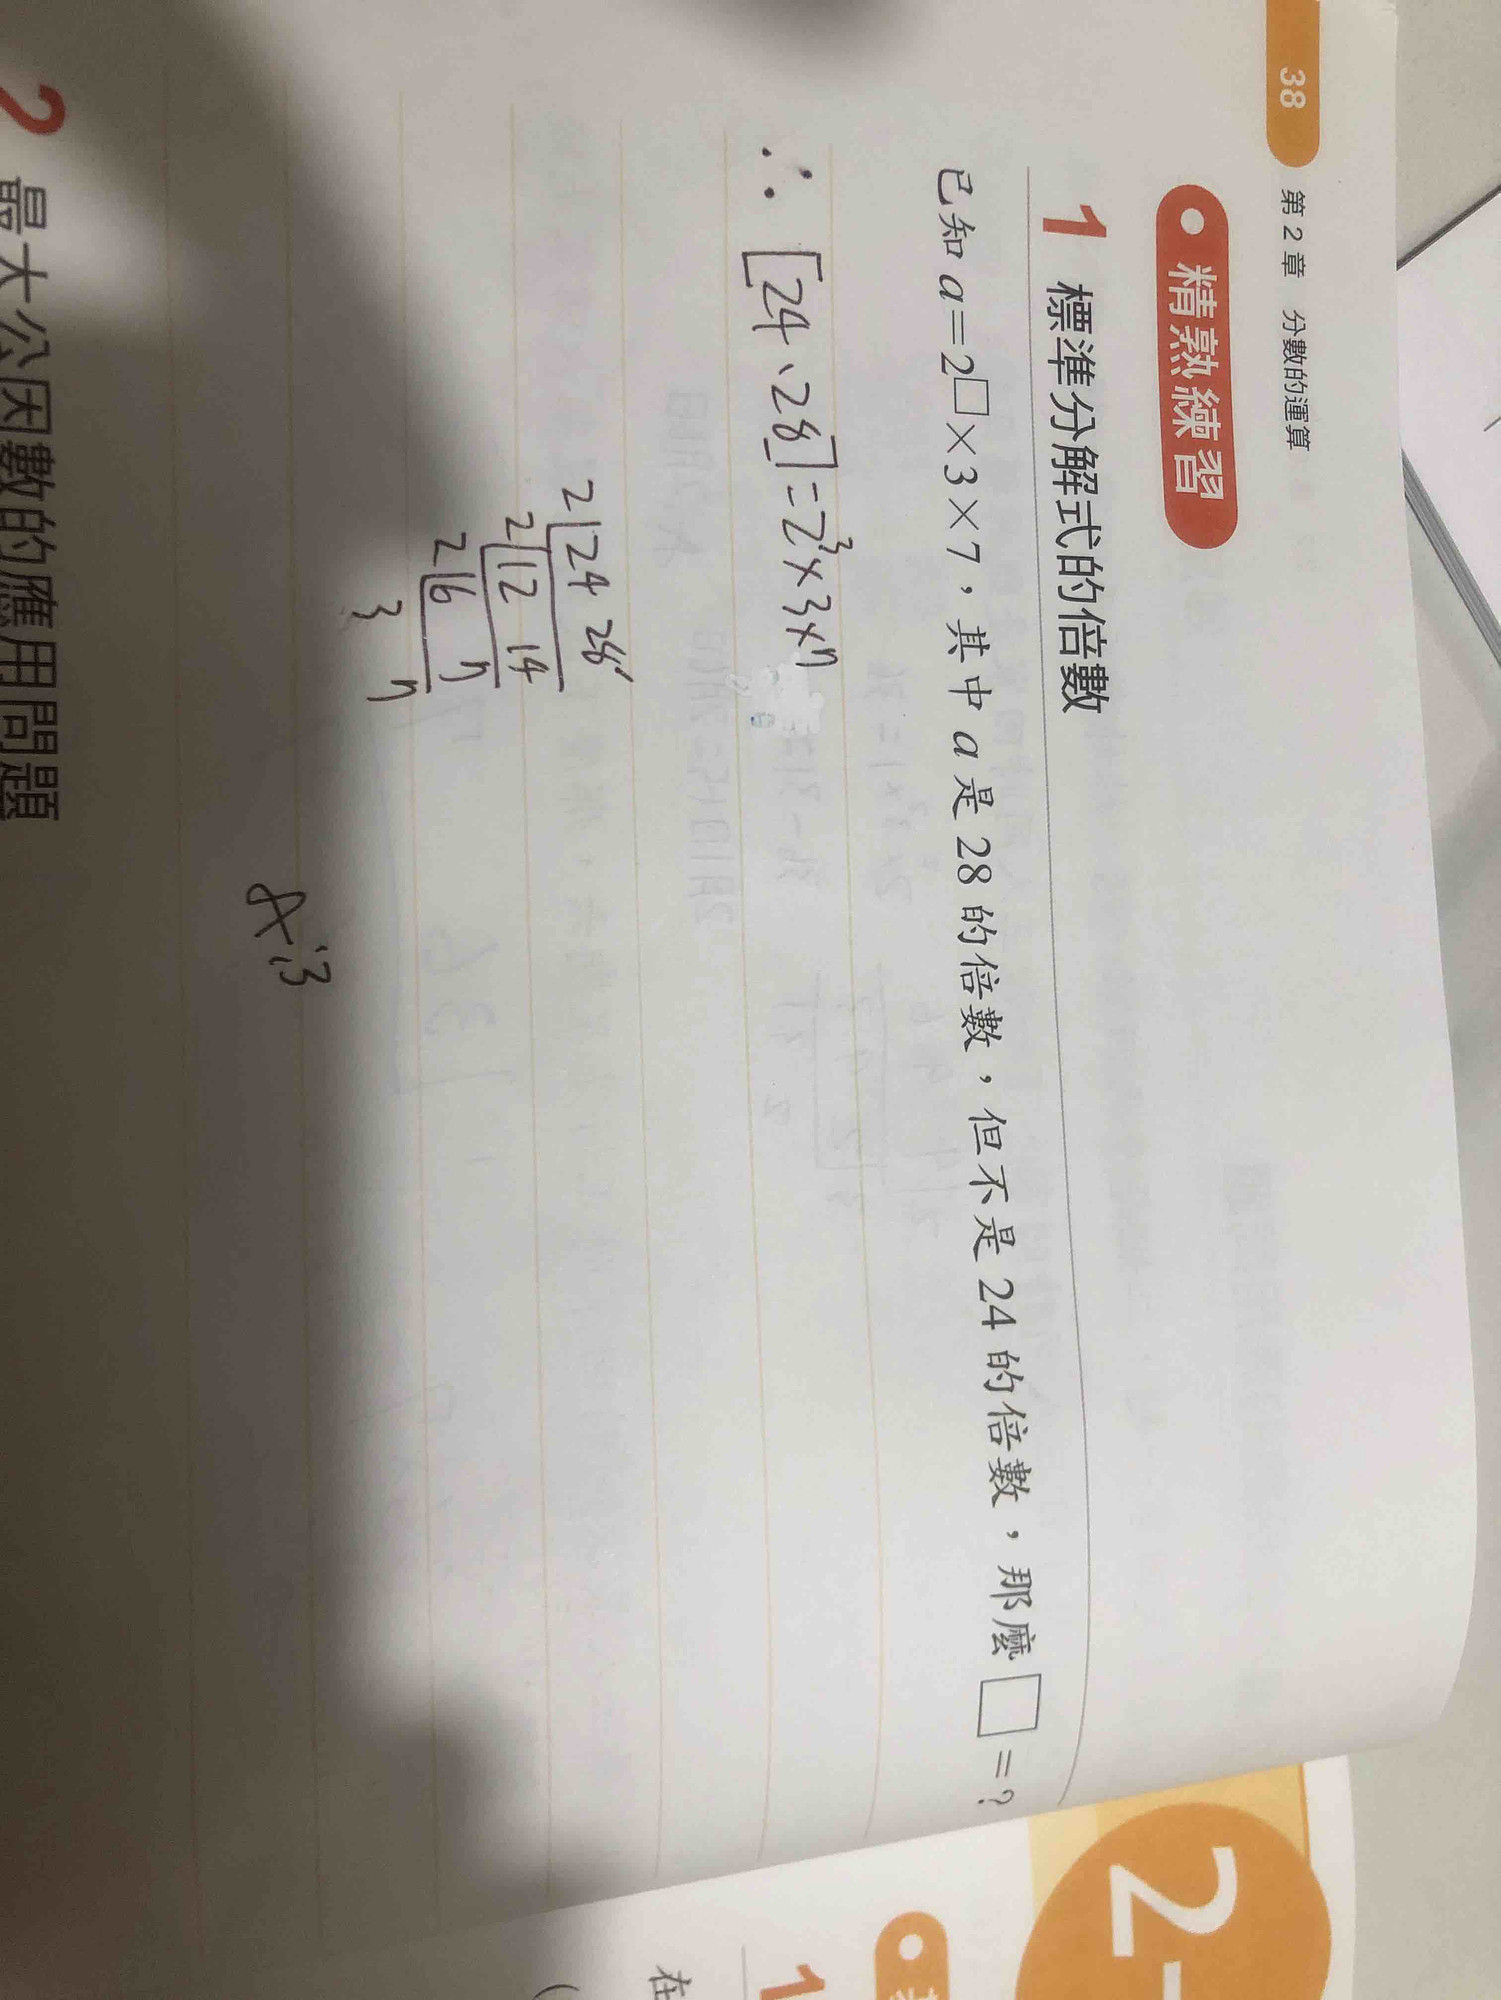 38 第 2 章 分數的運算
精熟練習
1 標準分解式的倍數
已知 a=2□×3×7，其中 a 是 28 的倍數，但不是 24 的倍數，那麼 □ =？
∴ [24、28]=2³×3×7
2 24 28
2 12 14
2 6 7
3 7
A:3
2 最大公因數的應用問題
2-
1
在
(